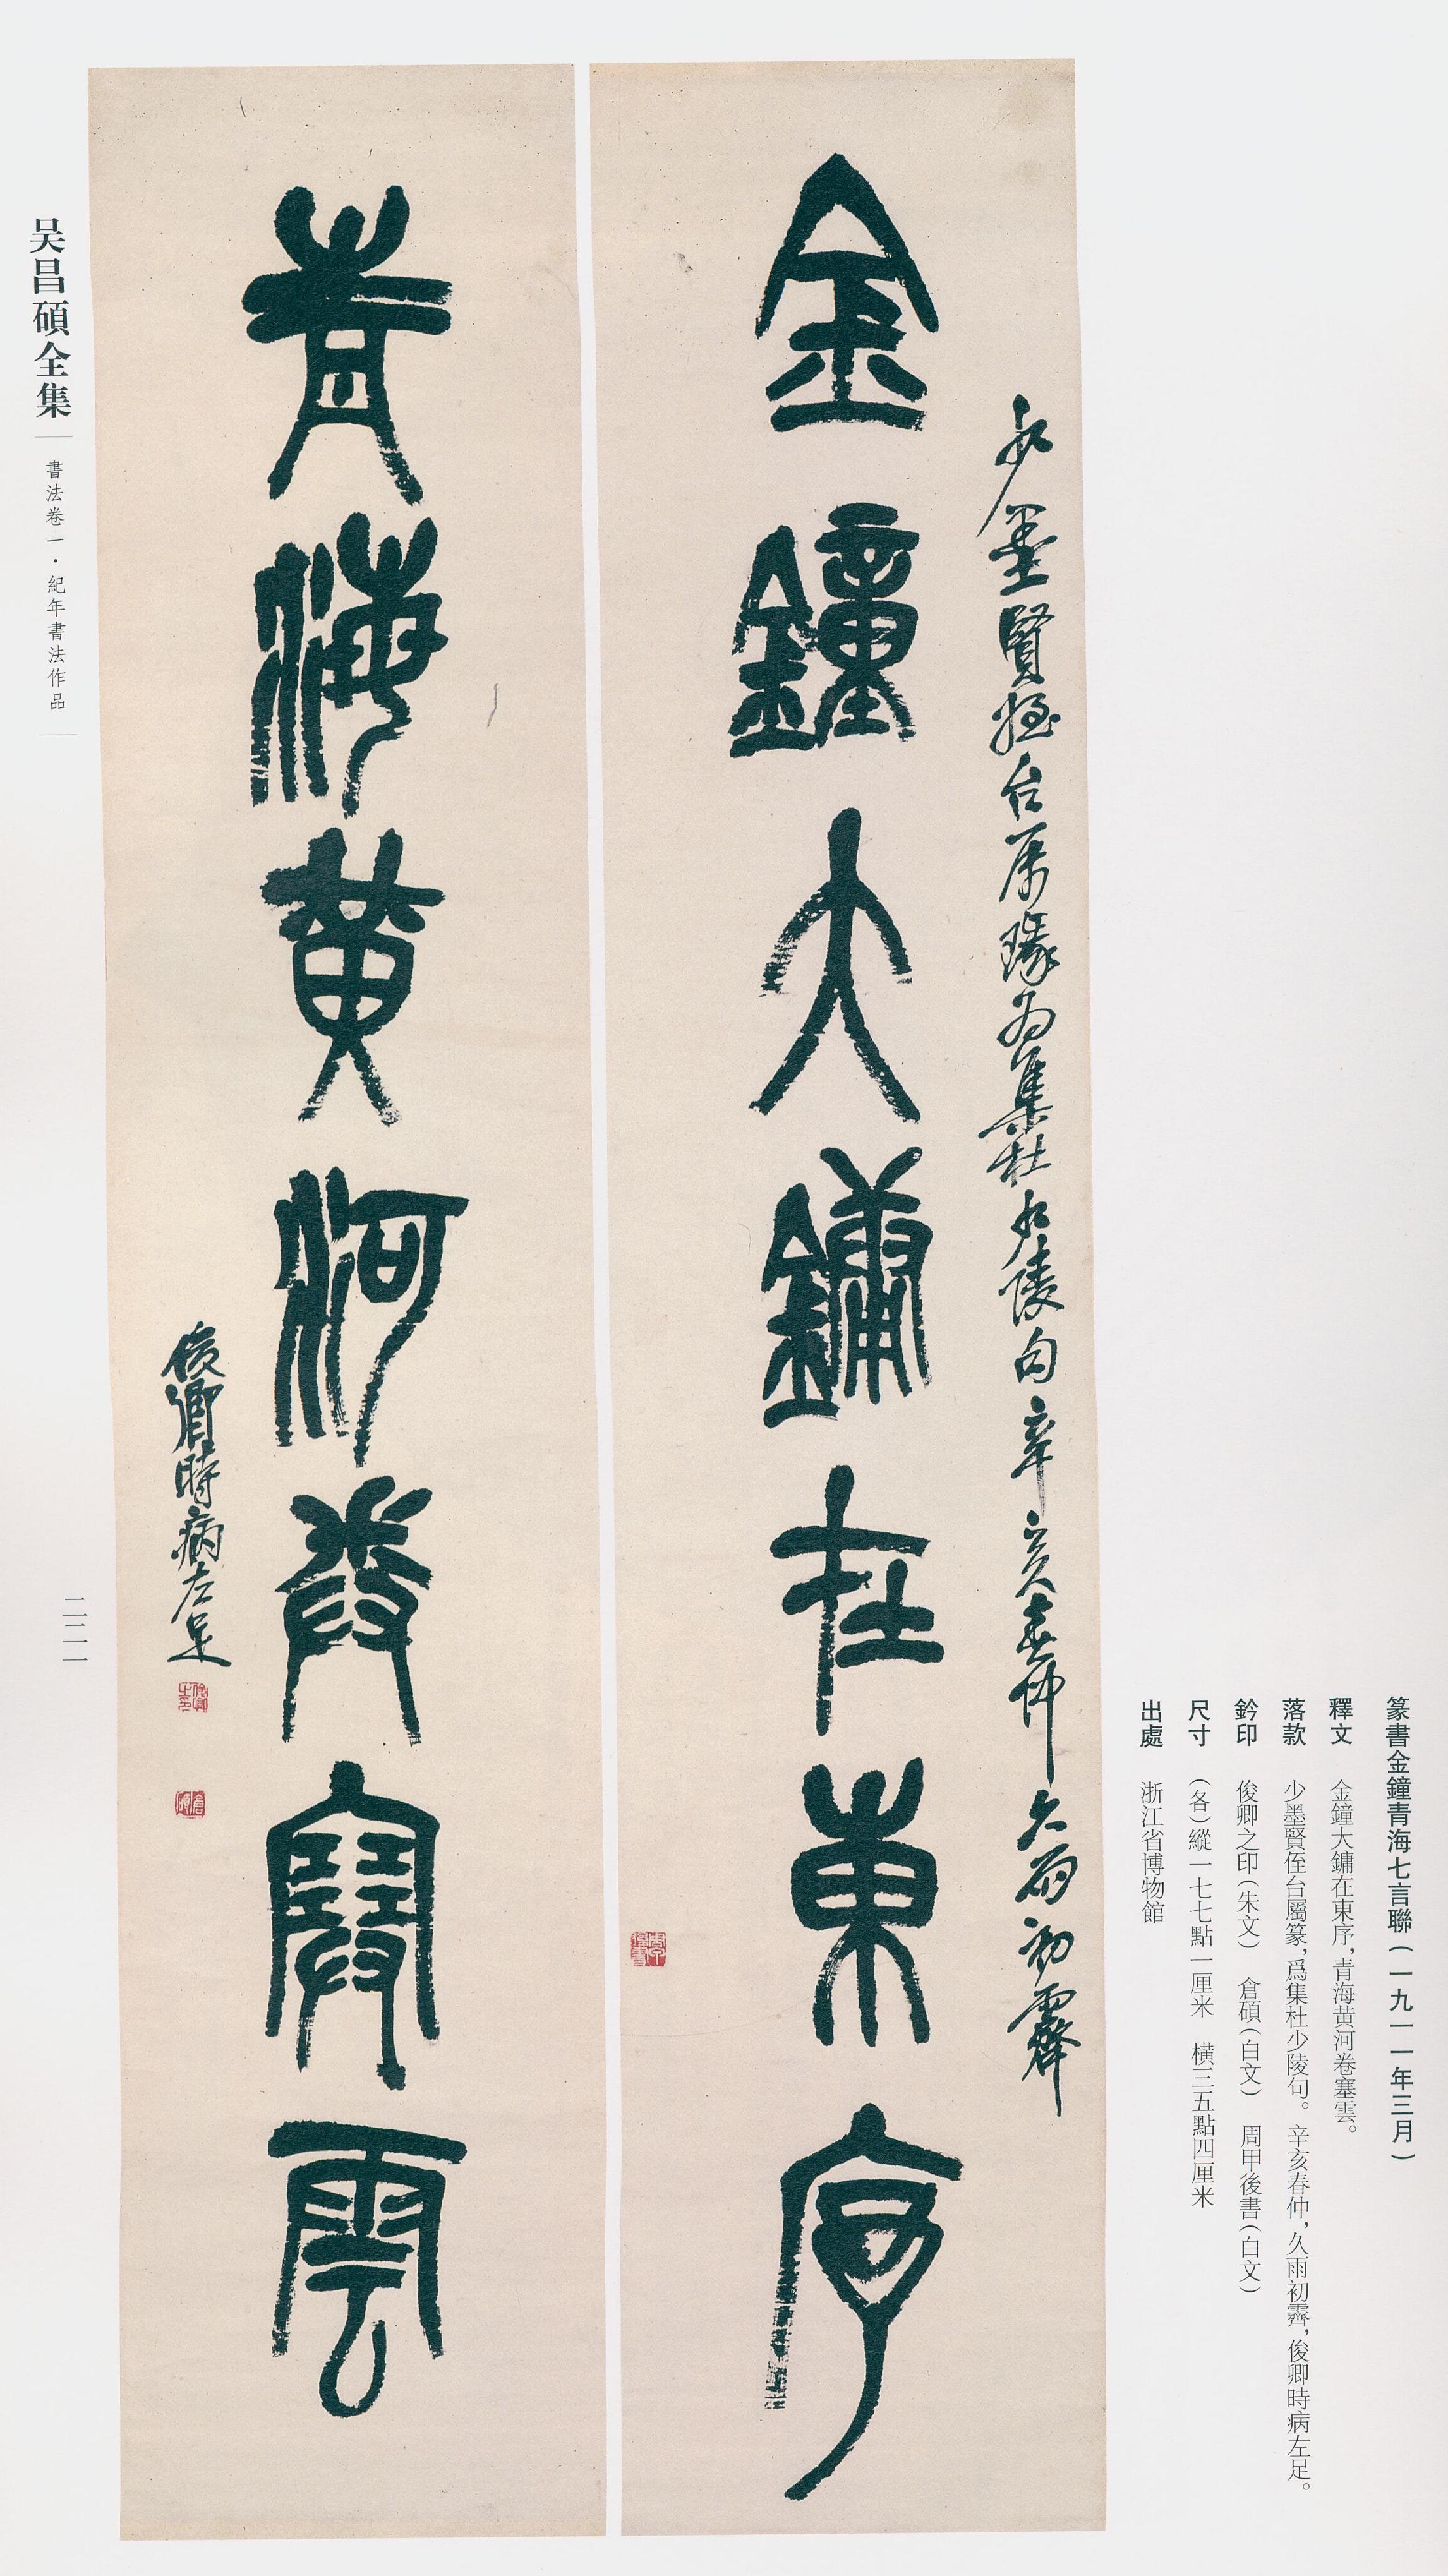 篆書金鐘青海七言聯(一九一一年三月)
釋文 金鐘大鏞在東序，青海黄河卷塞雲。
落款 少墨賢侄台屬篆，爲集杜少陵句。辛亥春仲，久雨初霽，俊卿時病左足。
鈐印 俊卿之印(朱文) 倉碩(白文) 周甲後書(白文)
尺寸 (各)縱一七七點一厘米 橫三五點四厘米
出處 浙江省博物館
少墨賢姪台属瑑为集杜少陵句辛亥春仲久雨初霽
金鐘大鏞在東序
周甲後書
青海黄河卷塞雲
俊卿時病左足
俊卿之印
倉碩
吴昌碩全集
書法卷一·紀年書法作品
二二一